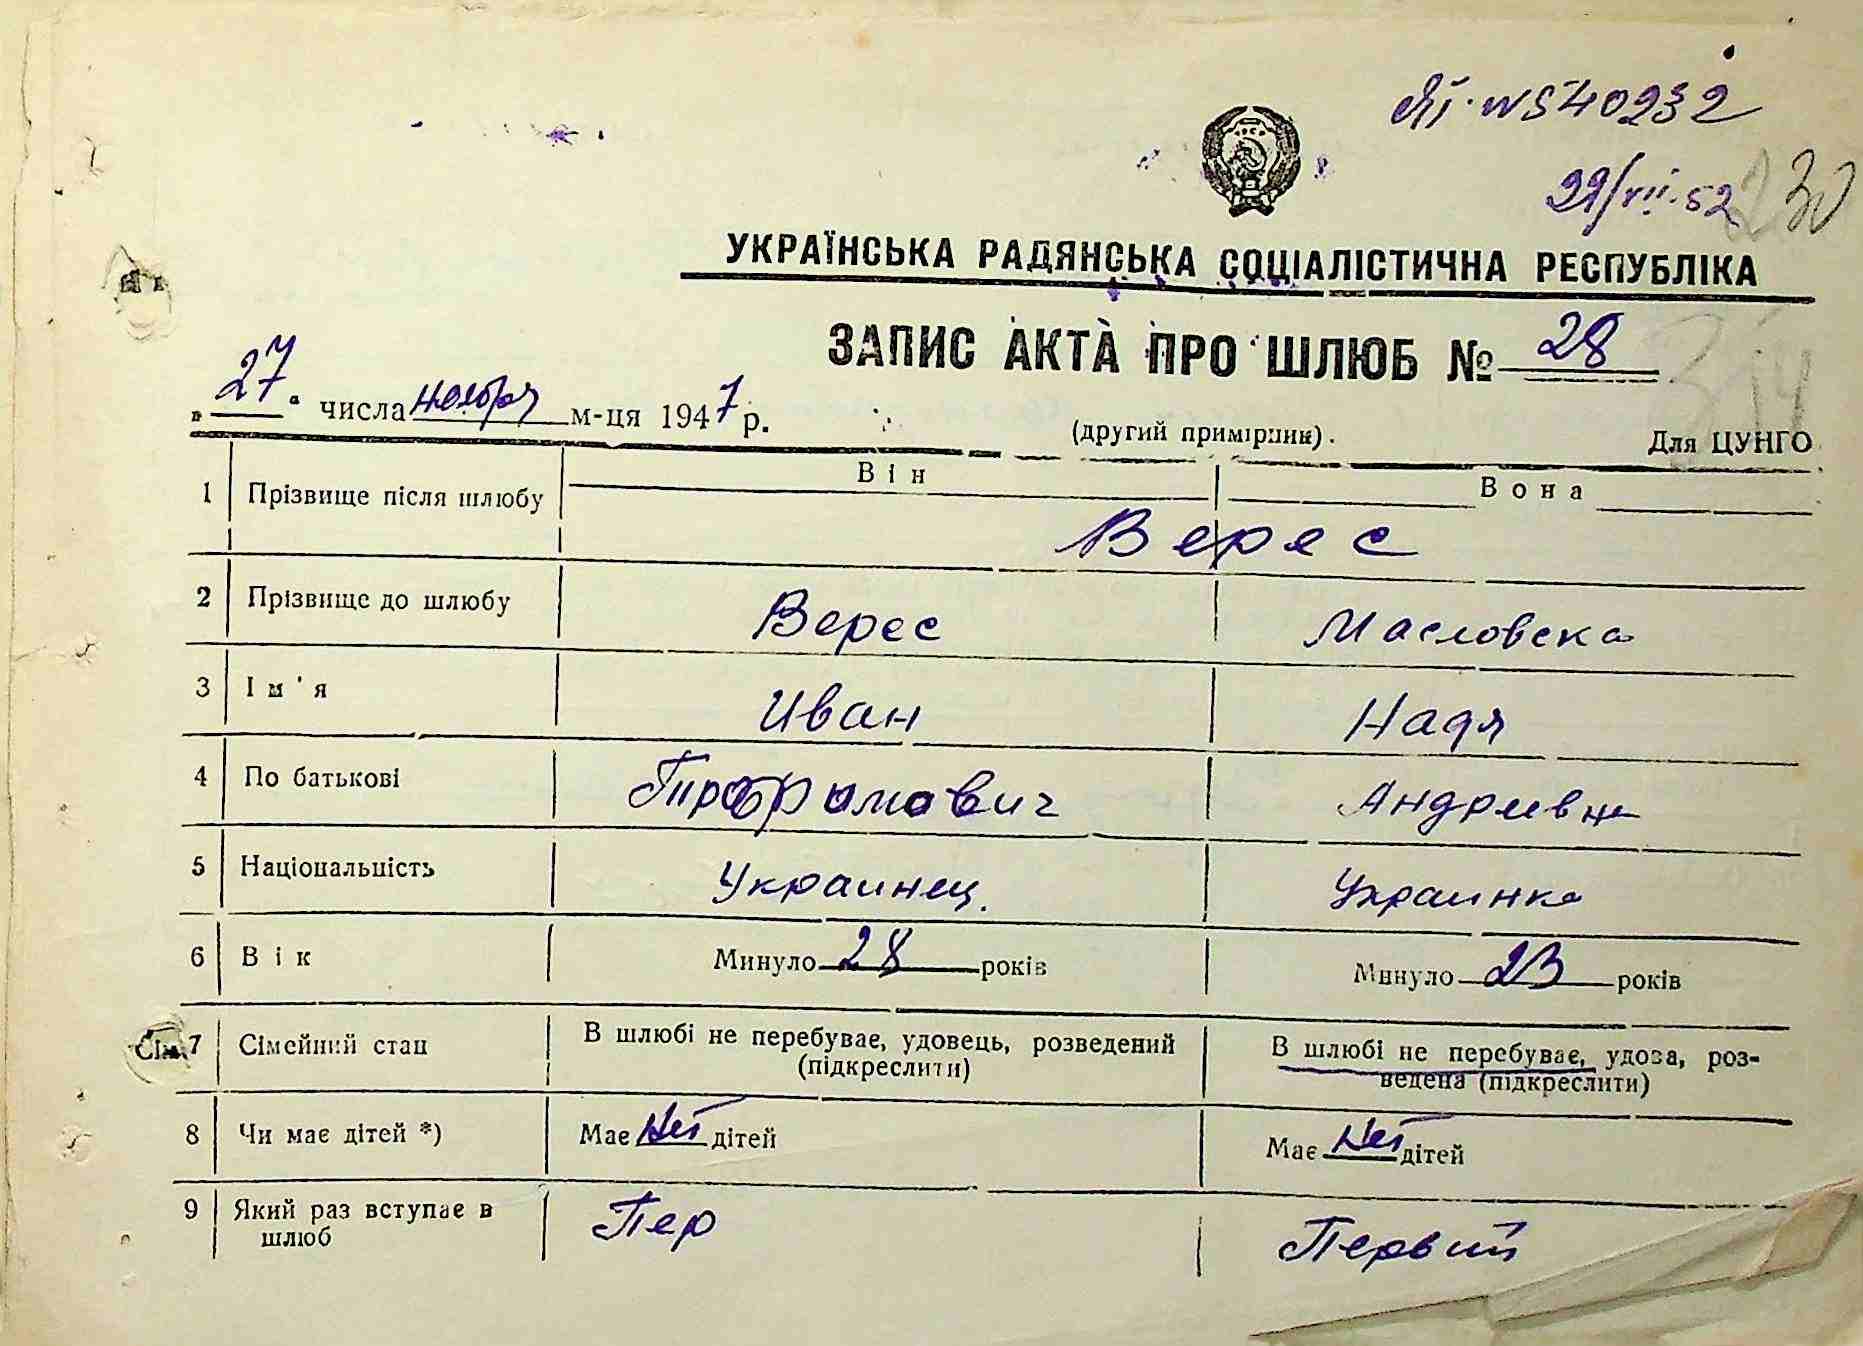 ЯП·№540232
29/VII·52 230
УКРАЇНСЬКА РАДЯНСЬКА СОЦІАЛІСТИЧНА РЕСПУБЛІКА
ЗАПИС АКТА ПРО ШЛЮБ № 28
„27" числа ноября м-ця 1947 р.
(другий примірник).
Для ЦУНГО
Він Вона
1 Прізвище після шлюбу Верес
2 Прізвище до шлюбу Верес Масловска
3 Ім'я Иван Надя
4 По батькові Андреевна
5 Національність Украинец. Украинка
6 Вік Минуло 28 років Минуло 23 років
7 Сімейний стан В шлюбі не перебуває, удовець, розведений (підкреслити) В шлюбі не перебуває, удова, роз-
ведена (підкреслити)
8 Чи має дітей *) Має нет дітей Має нет дітей
9 Який раз вступає в Пер Первий
шлюб